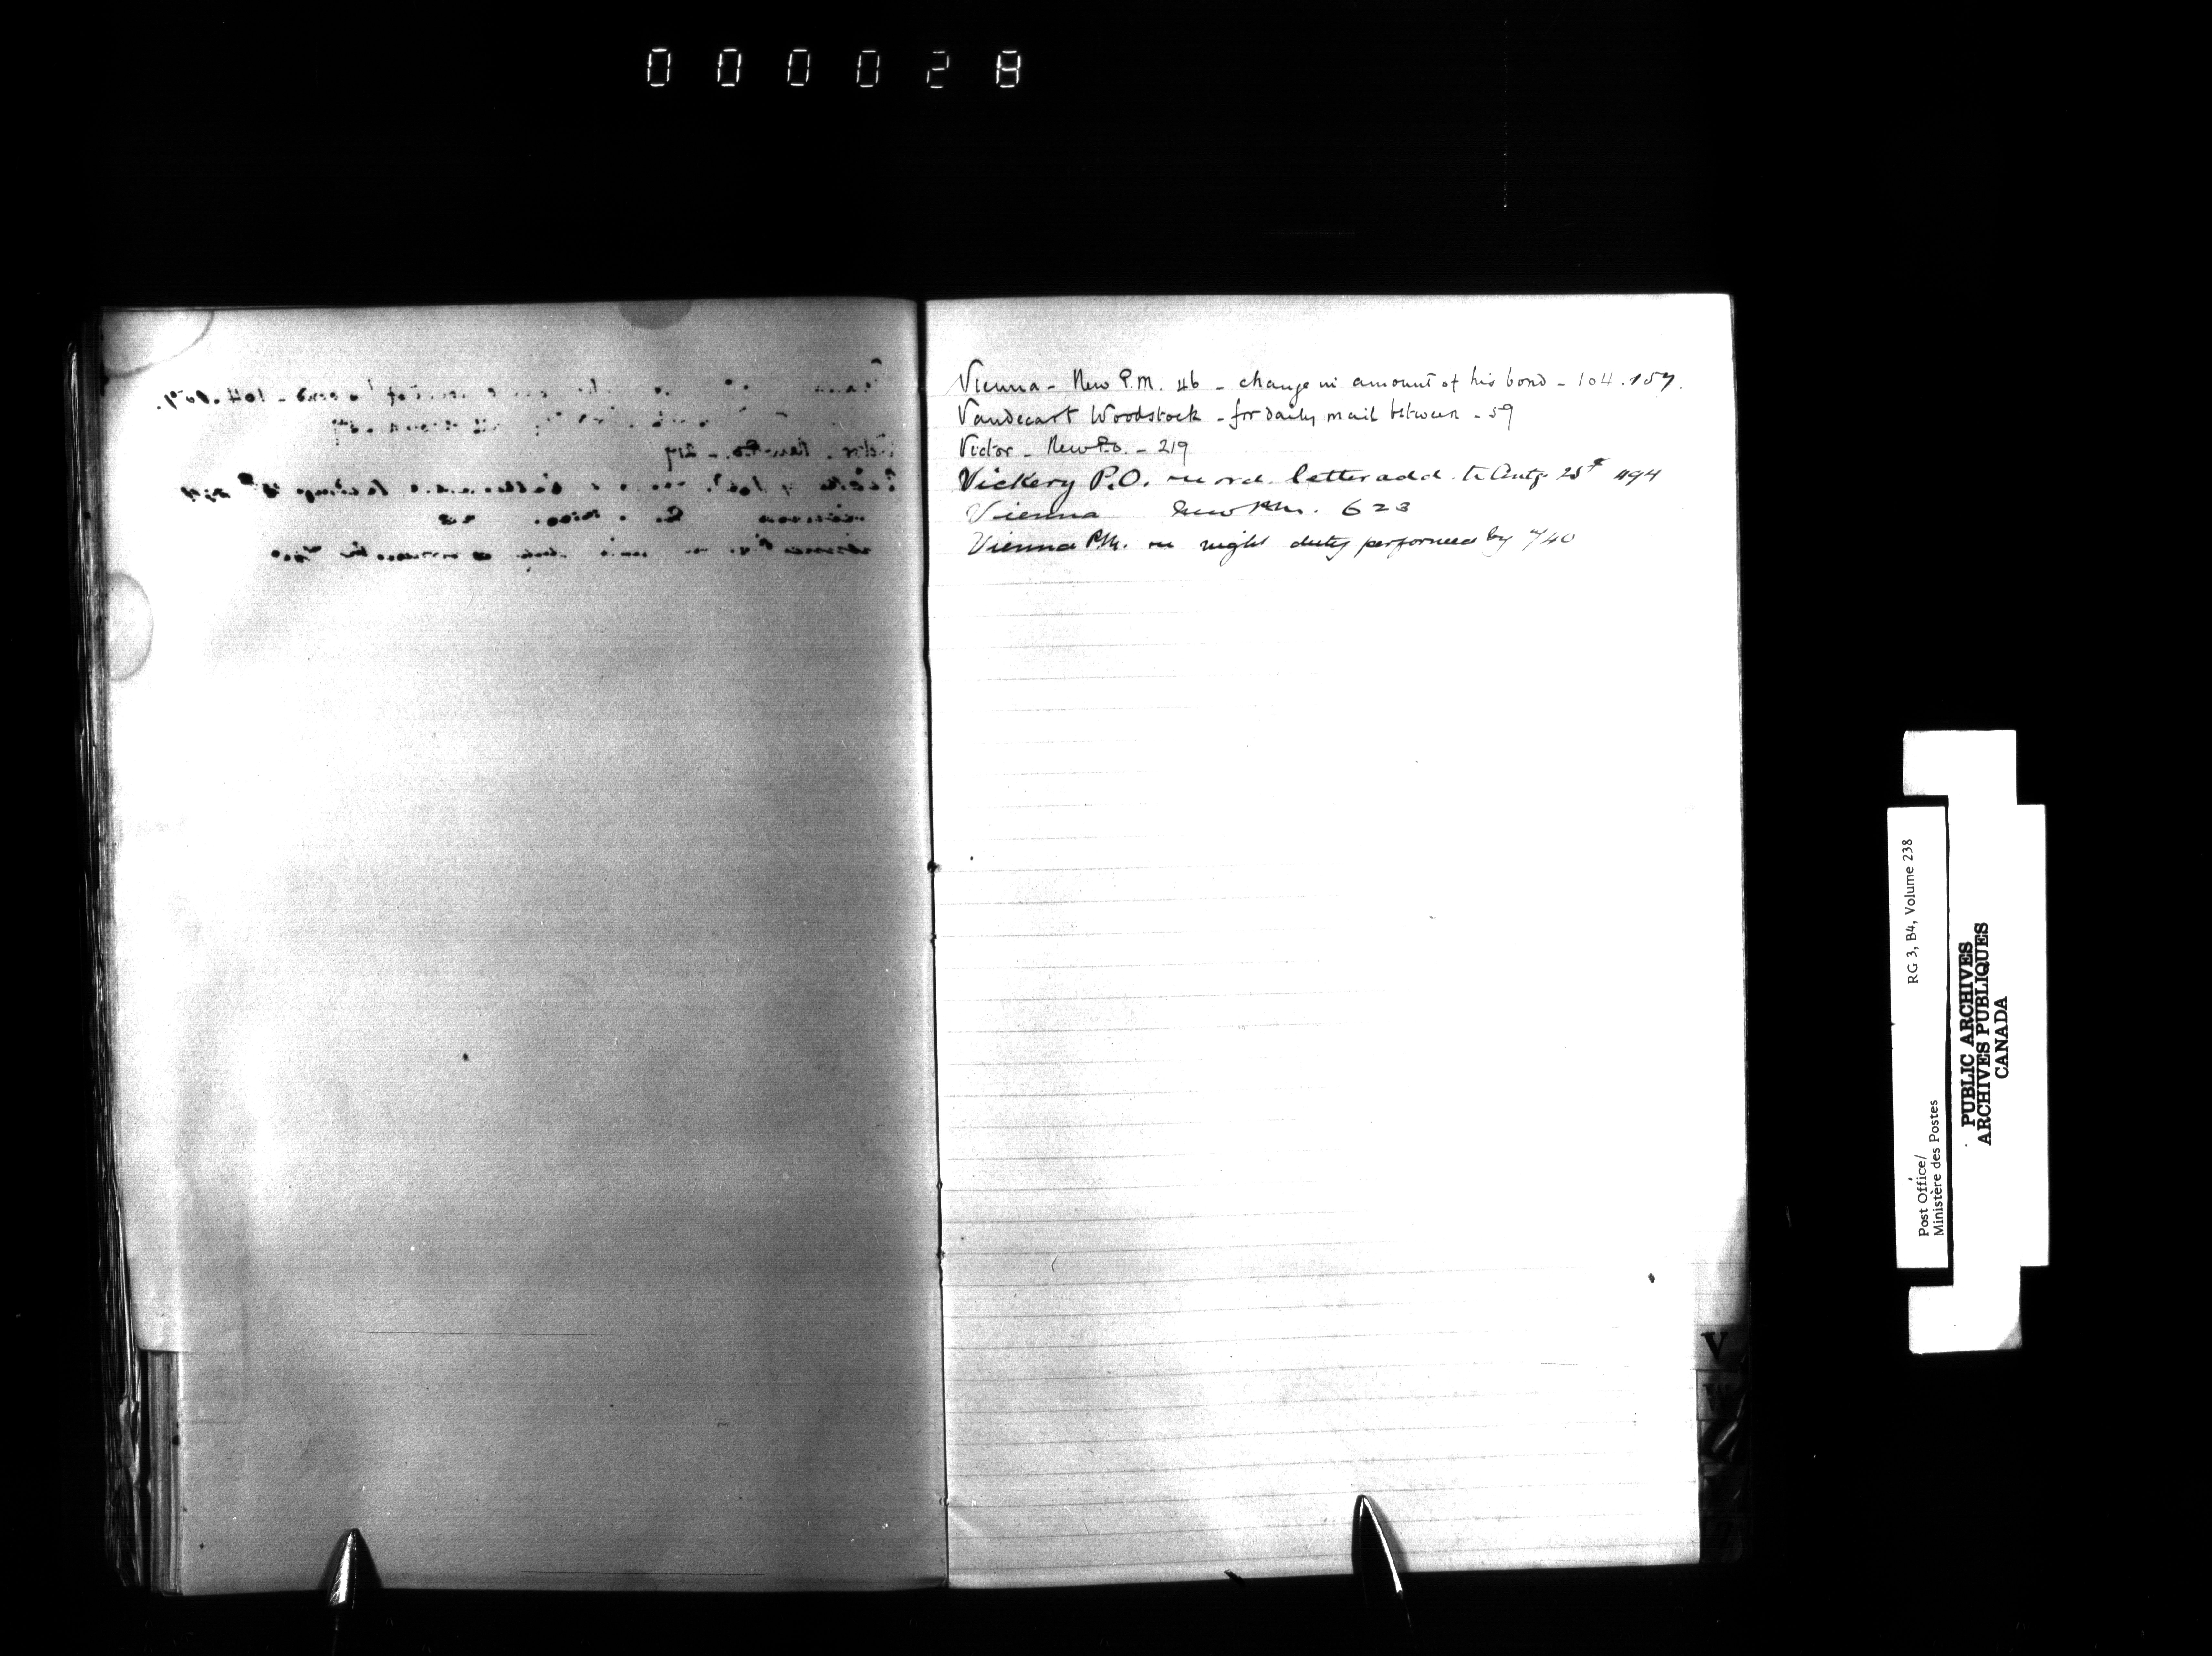 000028
Vienna - New P.M. 46 - change in amount of his bond - 104. 157.
Vandecart Woodstock - for daily mail between - 59
Victor - New P.O. - 219
Vickery P.O. re ord. letter add. to 494
Vienna New P.M. 623
Vienna P.M. re night duty performed by 740
V
W
Z
RG 3, B4, Volume 238
Post Office/
Ministère des Postes
PUBLIC ARCHIVES
ARCHIVES PUBLIQUES
CANADA